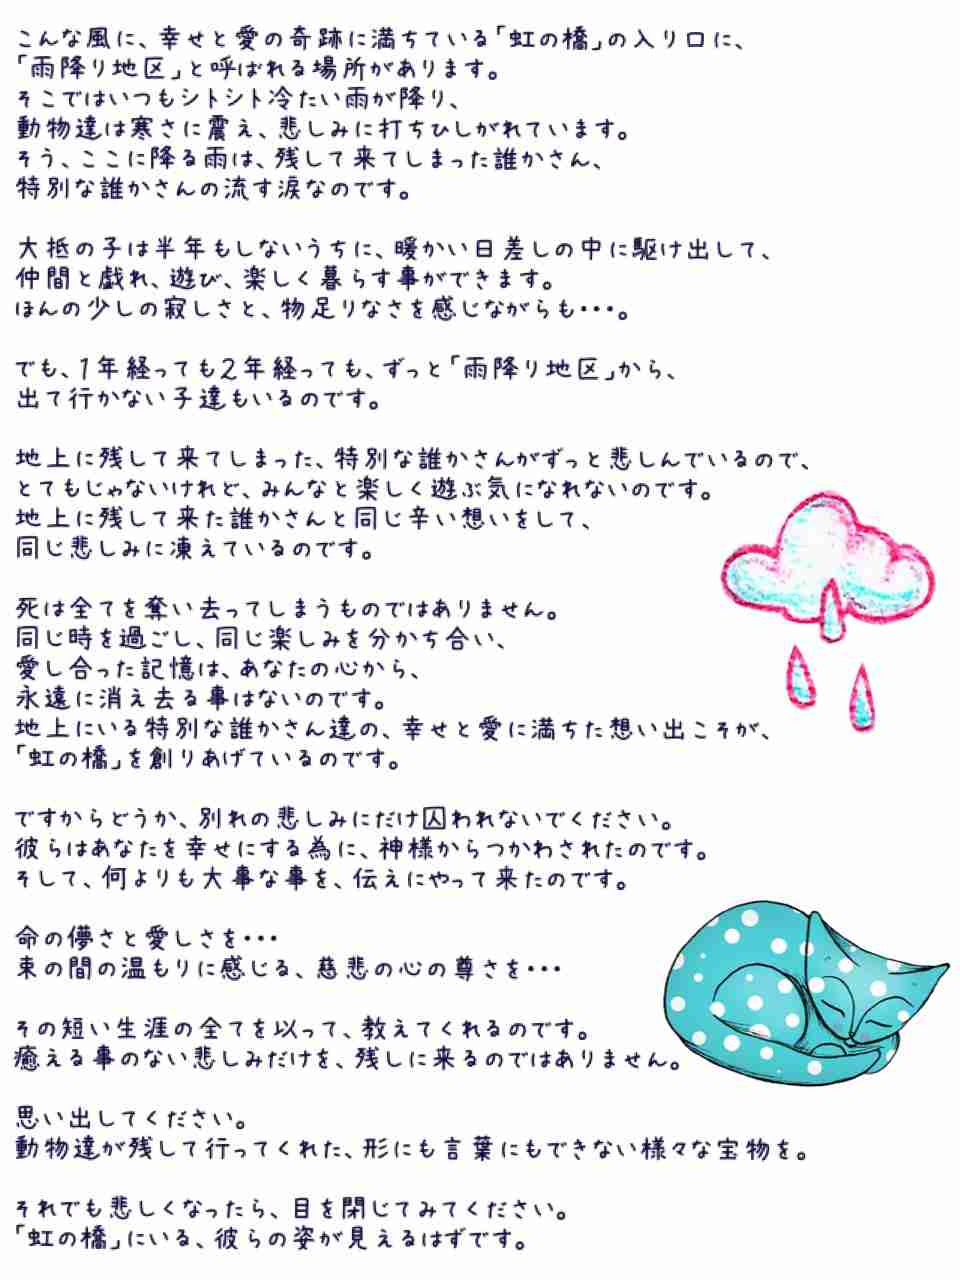 こんな風に、幸せと愛の奇跡に満ちている「虹の橋」の入り口に、
「雨降り地区」と呼ばれる場所があります。
そこではいつもシトシト冷たい雨が降り、
動物達は寒さに震え、悲しみに打ちひしがれています。
そう、ここに降る雨は、残して来てしまった誰かさん、
特別な誰かさんの流す涙なのです。
大抵の子は半年もしないうちに、暖かい日差しの中に駆け出して、
仲間と戯れ、遊び、楽しく暮らす事ができます。
ほんの少しの寂しさと、物足りなさを感じながらも・・・。
でも、1年経っても2年経っても、ずっと「雨降り地区」から、
出て行かない子達もいるのです。
地上に残して来てしまった、特別な誰かさんがずっと悲しんでいるので、
とてもじゃないけれど、みんなと楽しく遊ぶ気になれないのです。
地上に残して来た誰かさんと同じ辛い想いをして、
同じ悲しみに凍えているのです。
死は全てを奪い去ってしまうものではありません。
同じ時を過ごし、同じ楽しみを分かち合い、
愛し合った記憶は、あなたの心から、
永遠に消え去る事はないのです。
地上にいる特別な誰かさん達の、幸せと愛に満ちた想い出こそが、
「虹の橋」を創りあげているのです。
ですからどうか、別れの悲しみにだけ囚われないでください。
彼らはあなたを幸せにする為に、神様からつかわされたのです。
そして、何よりも大事な事を、伝えにやって来たのです。
命の儚さと愛しさを・・・
束の間の温もりに感じる、慈悲の心の尊さを・・・
その短い生涯の全てを以って、教えてくれるのです。
癒える事のない悲しみだけを、残しに来るのではありません。
思い出してください。
動物達が残して行ってくれた、形にも言葉にもできない様々な宝物を。
それでも悲しくなったら、目を閉じてみてください。
「虹の橋」にいる、彼らの姿が見えるはずです。